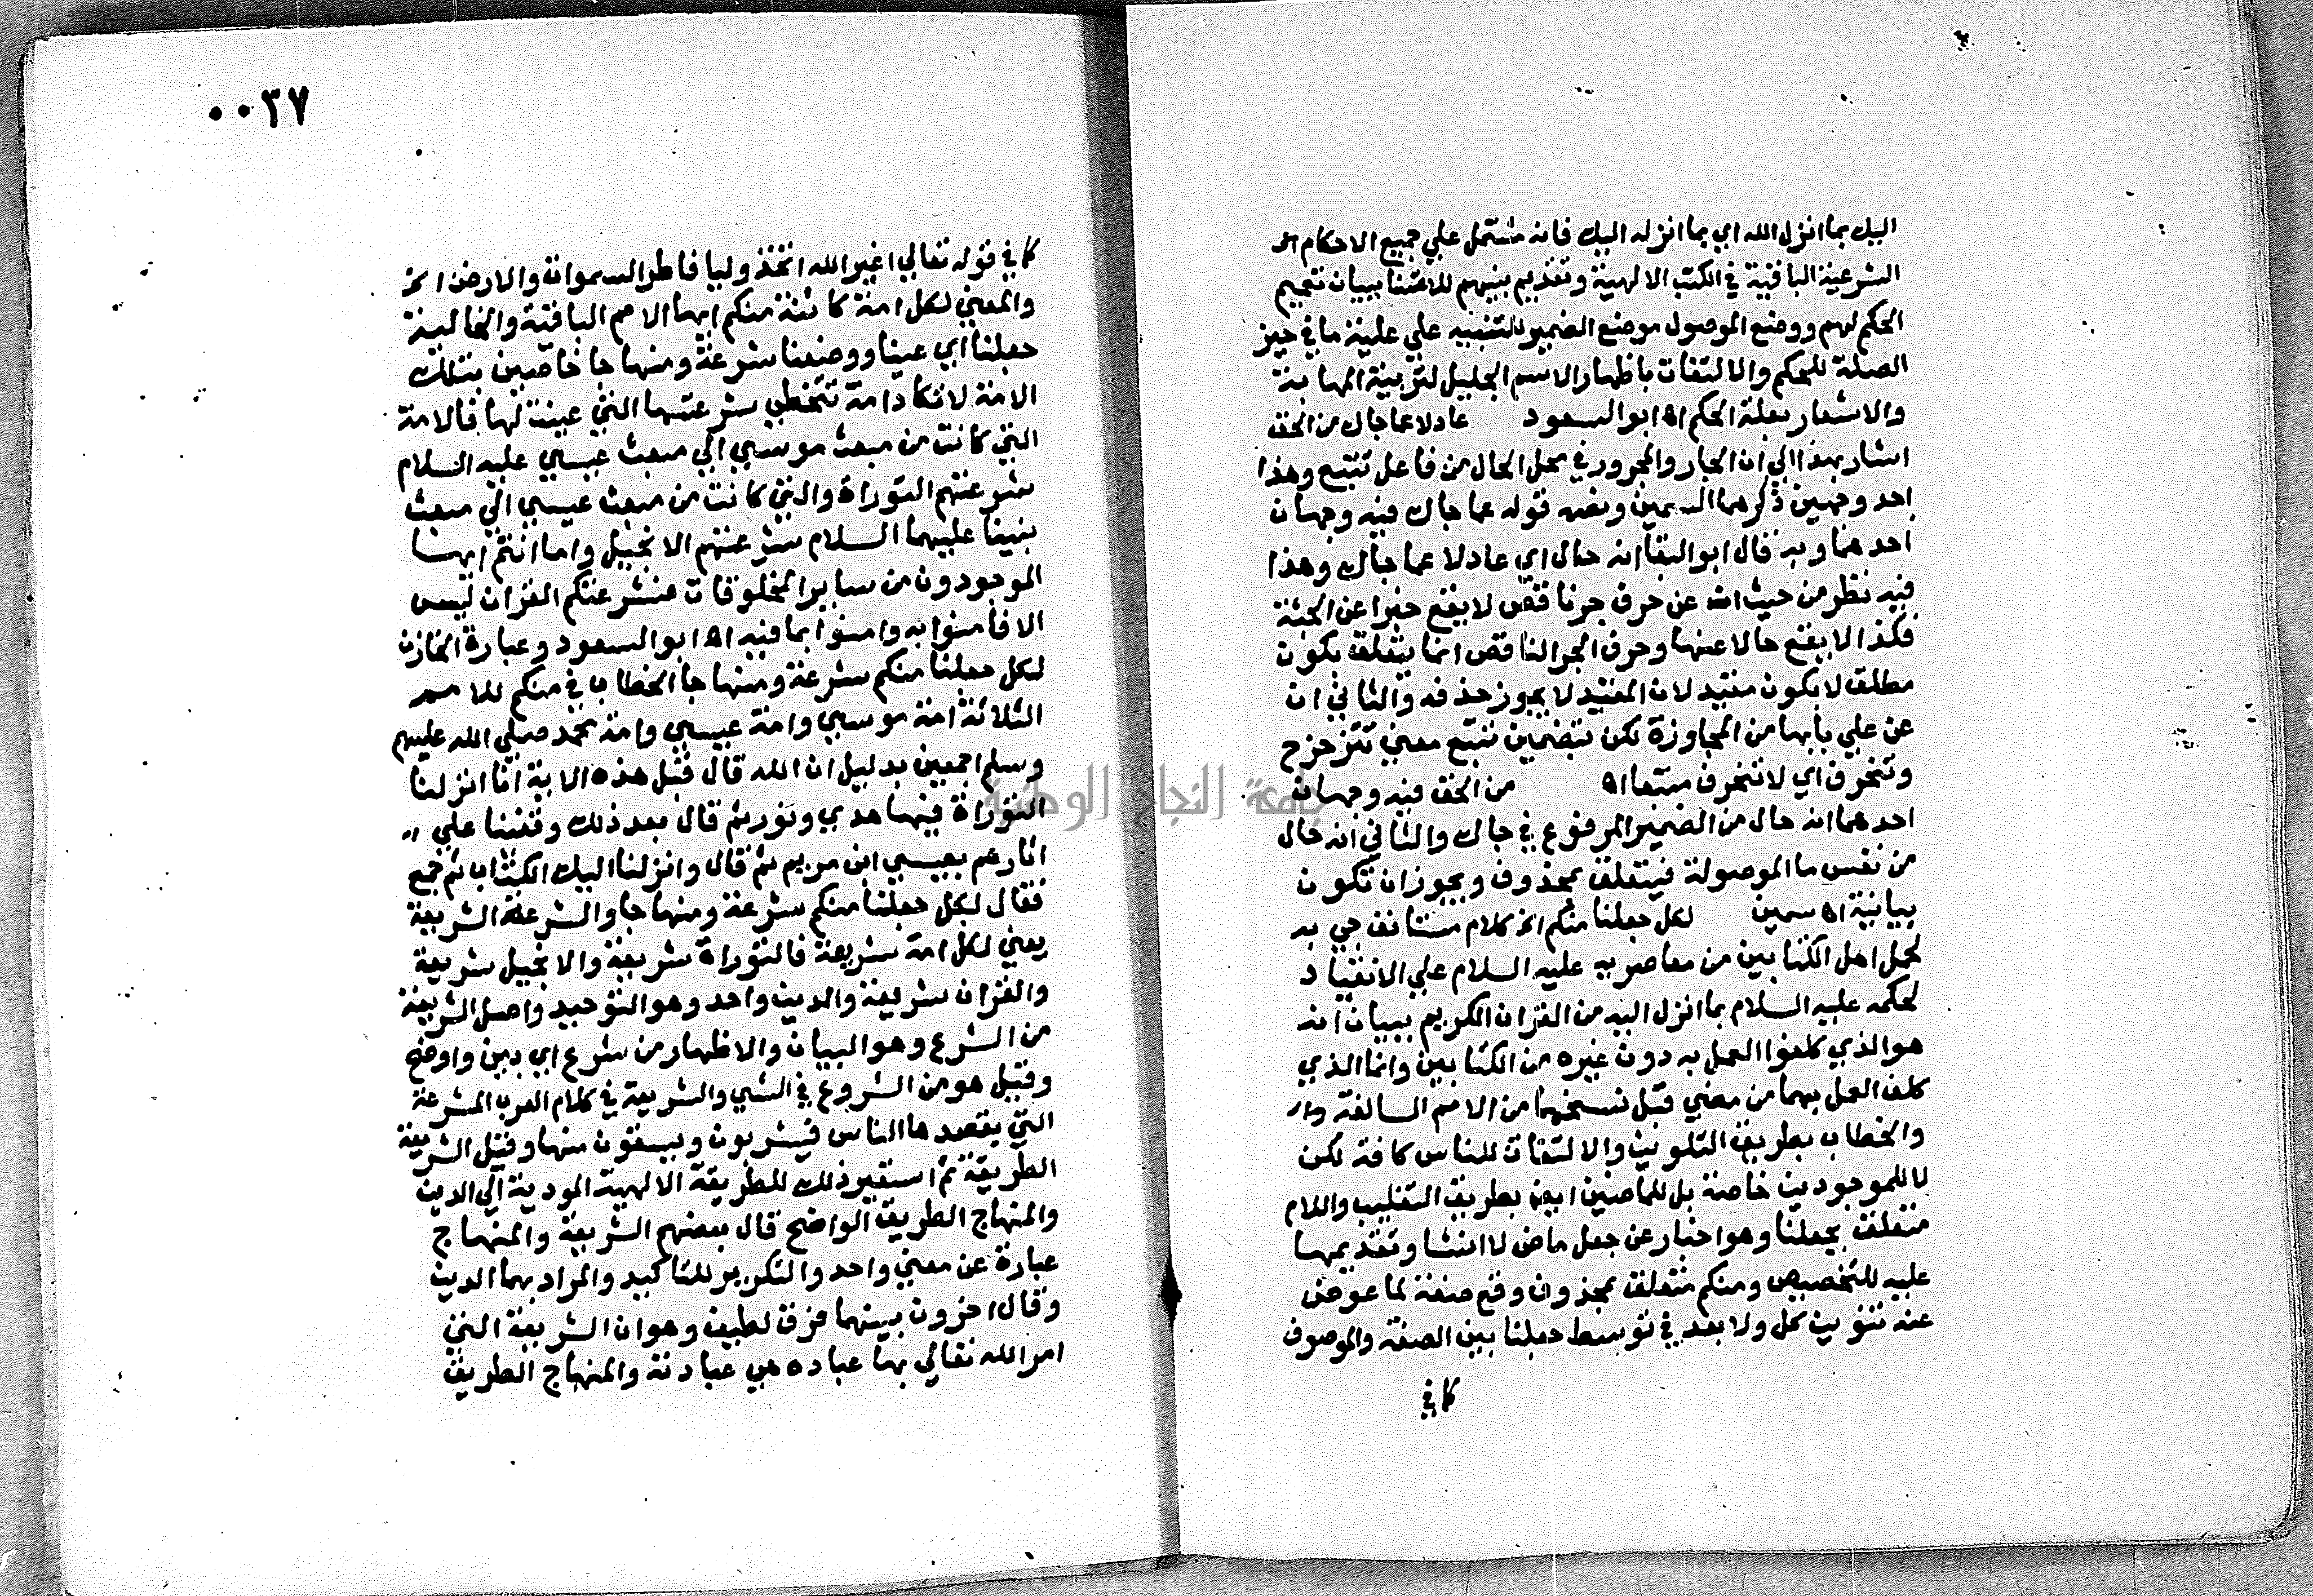 اليك بما انزل الله اي بما انزله اليك فانه مشتمل علي جميع الاحكام
الشرعية الباقية في الكتب الالهية وتقديم بينهم للاعتنا ببيان تعميم
الحكم لهم ووضع الموصول موضع الضمير للتنبيه علي علية ما في حيز
الصلة للحكم والالتفات باظهار الاسم الجليل لتربية المهابة
والاشعار بعلة الحكم اه ابو السعود عادلا عما جاك من الحق
اشار بهذا الي ان الجار والمجرور في محل الحال من فاعل تتبع وهذا
احد وجهين ذكرهما السمين ونصه قوله عما جاك فيه وجهان
احدهما وبه قال ابو البقا انه حال اي عادلا عما جاك وهذا
فيه نظر من حيث ان عن حرف جر ناقص لا يقع خبرا عن الجثة
فكذا لا يقع حالا عنها وحرف الجر الناقص انما يتعلق بكون
مطلق لا بكون مقيد لان المقيد لا يجوز حذفه والثاني ان
عن علي بابها من المجاوزة لكن بتضمين تتبع معني تتزحزح
وتنحرف اي لا تنحرف متبعا اه من الحق فيه وجهان
احدهما انه حال من الضمير المرفوع في جاك والثاني انه حال
من نفس ما الموصولة فيتعلق بمحذوف ويجوز ان تكون
بيانية اه سمين لكل جعلنا منكم الخ كلام مستانف جي به
لحمل اهل الكتابين من معاصريه عليه السلام علي الانقياد
لحكمه عليه السلام بما انزل اليه من القران الكريم ببيان انه
هو الذي كلفوا العمل به دون غيره من الكتابين وانما الذي
كلف العمل بهما من مضي قبل نسخهما من الامم السالفة
والخطاب بطريق التلوين والالتفات للناس كافة لكن
لا للموجودين خاصة بل للماضين ايضا بطريق التغليب واللام
متعلق بجعلنا وهو اخبار عن جعل ماض لا انشا وتقديمها
عليه للتخصيص ومنكم متعلق بمحذوف وقع صفة لما عوض
عنه تنوين كل ولا بعد في توسط جعلنا بين الصفة والموصوف
كما في
٠٠٣٧
كما في قوله تعالي اغير الله اتخذ وليا فاطر السموات والارض الخ
والمعني لكل امة كائنة منكم ايها الامم الباقية والخالية
جعلنا اي عينا ووضعنا شرعة ومنهاجا خاصين بتلك
الامة لا تكاد امة تتخطي شرعتها التي عينت لها فالامة
التي كانت من مبعث موسي الي مبعث عيسي عليه السلام
شرعتهم التوراة والتي كانت من مبعث عيسي الي مبعث
نبينا عليهما السلام شرعتهم الانجيل واما انتم ايها
الموجودون من ساير المخلوقات فشرعتكم القران ليس
الا فامنوا به وامنوا بما فيه اه ابو السعود وعبارة الخازن
لكل جعلنا منكم شرعة ومنهاجا الخطاب في منكم للامم
الثلاثة امة موسي وامة عيسي وامة محمد صلي الله عليهم
وسلم اجمعين بدليل ان الله قال قبل هذه الاية انا انزلنا
التوراة فيها هدي ونور ثم قال بعد ذلك وقفينا علي
اثارهم بعيسي ابن مريم ثم قال وانزلنا اليك الكتاب ثم جمع
فقال لكل جعلنا منكم شرعة ومنهاجا والشرعة الشريعة
يعني لكل امة شريعة فالتوراة شريعة والانجيل شريعة
والقران شريعة والدين واحد وهو التوحيد واصل الشريعة
من الشرع وهو البيان والاظهار من شرع اي بين واوضح
وقيل هو من الشروع في الشي والشريعة في كلام العرب المشرعة
التي يقصدها الناس فيشربون ويسقون منها وقيل الشريعة
الطريقة ثم استعير ذلك للطريقة الالهية المودية الي الدين
والمنهاج الطريق الواضح قال بعضهم الشريعة والمنهاج
عبارة عن معني واحد والتكرير للتاكيد والمراد بهما الدين
وقال اخرون بينهما فرق لطيف وهو ان الشريعة التي
امر الله تعالي بها عباده هي عبادته والمنهاج الطريق
جامعة النجاح الوطنية